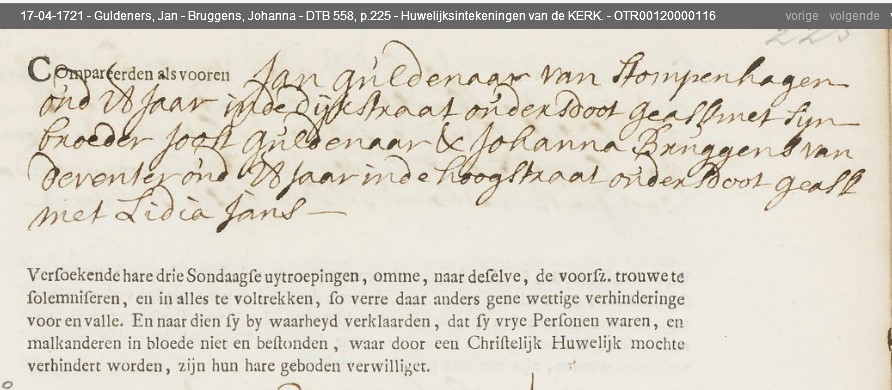 17-04-1721 - Guldeners, Jan - Bruggens, Johanna - DTB 558, p.225 - Huwelijksintekeningen van de KERK. - OTR00120000116 vorige volgende
225
Compareerden als vooren Jan Guldenaar van Stompenhagen
oud 28 Jaar inde dijkstraat ouders doot geasst met syn
broeder Joost Guldenaar & Johanna Bruggens van
deventer oud 28 Jaar inde hoogstraat ouders doot geasst
met Lidia Jans —
Verſoekende hare drie Sondaagſe uytroepingen, omme, naar deſelve, de voorſz. trouwe te
ſolemniſeren, en in alles te voltrekken, ſo verre daar anders gene wettige verhinderinge
voor en valle. En naar dien ſy by waarheyd verklaarden, dat ſy vrye Perſonen waren, en
malkanderen in bloede niet en beſtonden, waar door een Chriſtelijk Huwelijk mochte
verhindert worden, zijn hun hare geboden verwilliget.